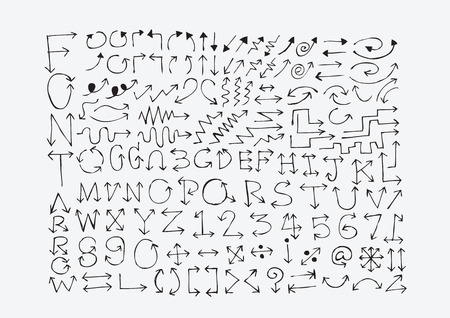 FONT
ARROW
A B C D E F G H I J K L
M N O P Q R S T U V
W X Y Z 1 2 3 4 5 6 7
8 9 0 ÷ ! % @ *
( ) [ ] ?